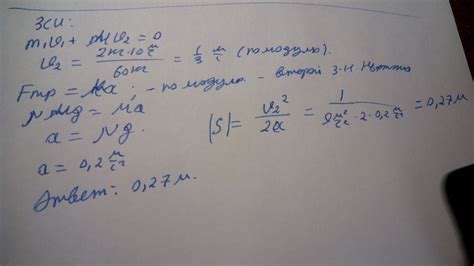 ЗСИ:
m₁v₁ + Mv₂ = 0
v₂ = 2кг·10 м/с / 60кг = 1/3 м/с (по модулю).
Fтр = Ma - по модулю - второй З-Н Ньютона
μMg = Ma
a = μg.
a = 0,2 м/с²
|S| = v₂² / 2a = 1 / 9 м²/с² · 2 · 0,2 м/с² = 0,27м
Ответ: 0,27м.